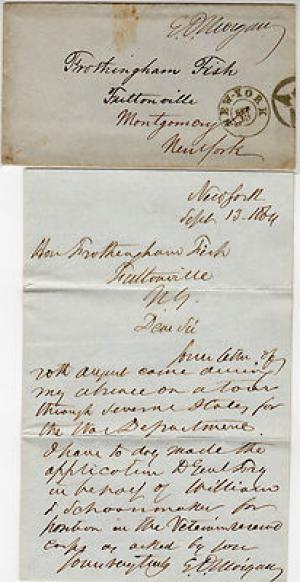 E.D. Morgan
Frothingham Fish
Fultonville
Montgomery
New York
NEW-YORK
SEP
13
New York
Sept 13. 1864
Hon Frothingham Fish
Fultonville
N.Y.
Dear Sir
Your letter of
20th August came during
my absence on a tour
through several States for
the War Department.
I have to day made the
application to Genl Fry
in behalf of William
Schoonmaker for
position in the Veteran reserve
corps as asked by you
Yours very truly E.D. Morgan